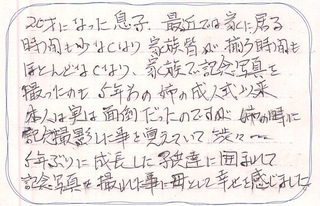 20才になった息子、最近では家に居る
時間も少なくなり家族皆が揃う時間も
ほとんどなくなり、家族で記念写真を
撮ったのも5年前の姉の成人式以来
本人は実は面倒だったのですが姉の時に
記念撮影した事を覚えていて渋々〜
5年ぶりに成長した子供達に囲まれて
記念写真を撮れた事に母として幸せを感じました